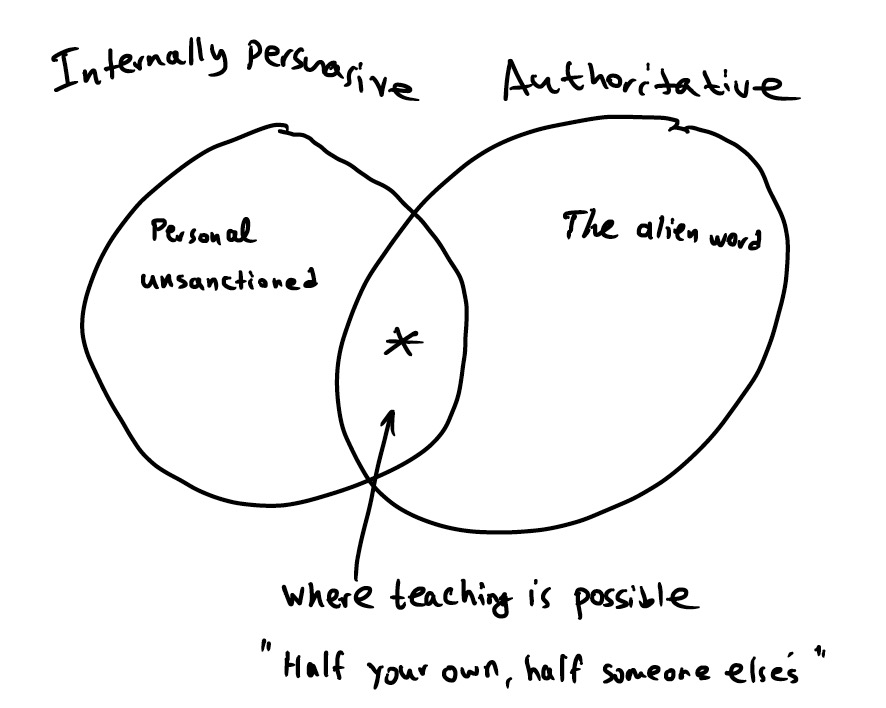 Internally Persuasive
Authoritative
Personal
unsanctioned
The alien word
*
where teaching is possible
"Half your own, half someone else's"